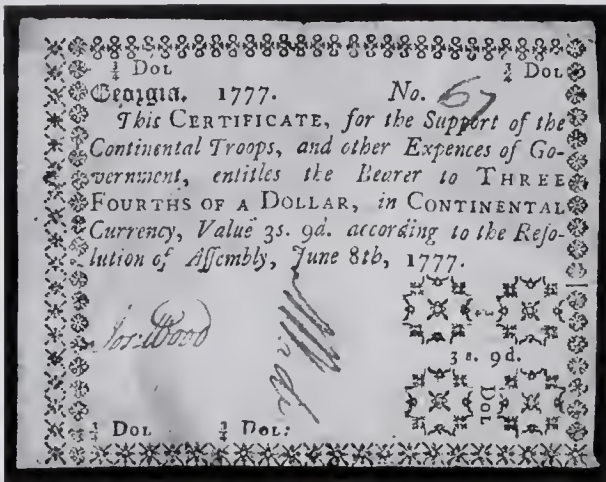 ¾ Dol ¾ Dol
Georgia. 1777. No. 67
This CERTIFICATE, for the Support of the
Continental Troops, and other Expences of Go-
vernment, entitles the Bearer to THREE
FOURTHS OF A DOLLAR, in CONTINENTAL
Currency, Value 3s. 9d. according to the Reſo-
lution of Aſſembly, June 8th, 1777.
Wood
3 s. 9d.
DOL
¾ DOL ¾ DOL: